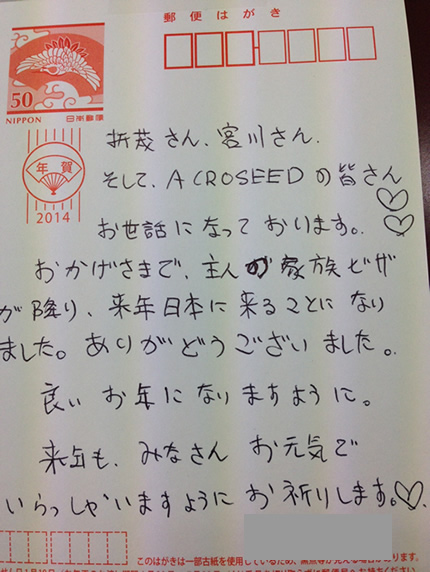 郵便はがき
50
NIPPON 日本郵便
年賀
2014
折茂さん、宮川さん、
そして、ACROSEEDの皆さん♡♡
お世話になっております。
おかげさまで、主人の家族ビザ
が降り、来年日本に来ることになり
ました。ありがどうございました。
良いお年になりますように。
来年も、みなさんお元気で
いらっしゃいますようにお祈りします。♡
このはがきは一部古紙を使用しているため、